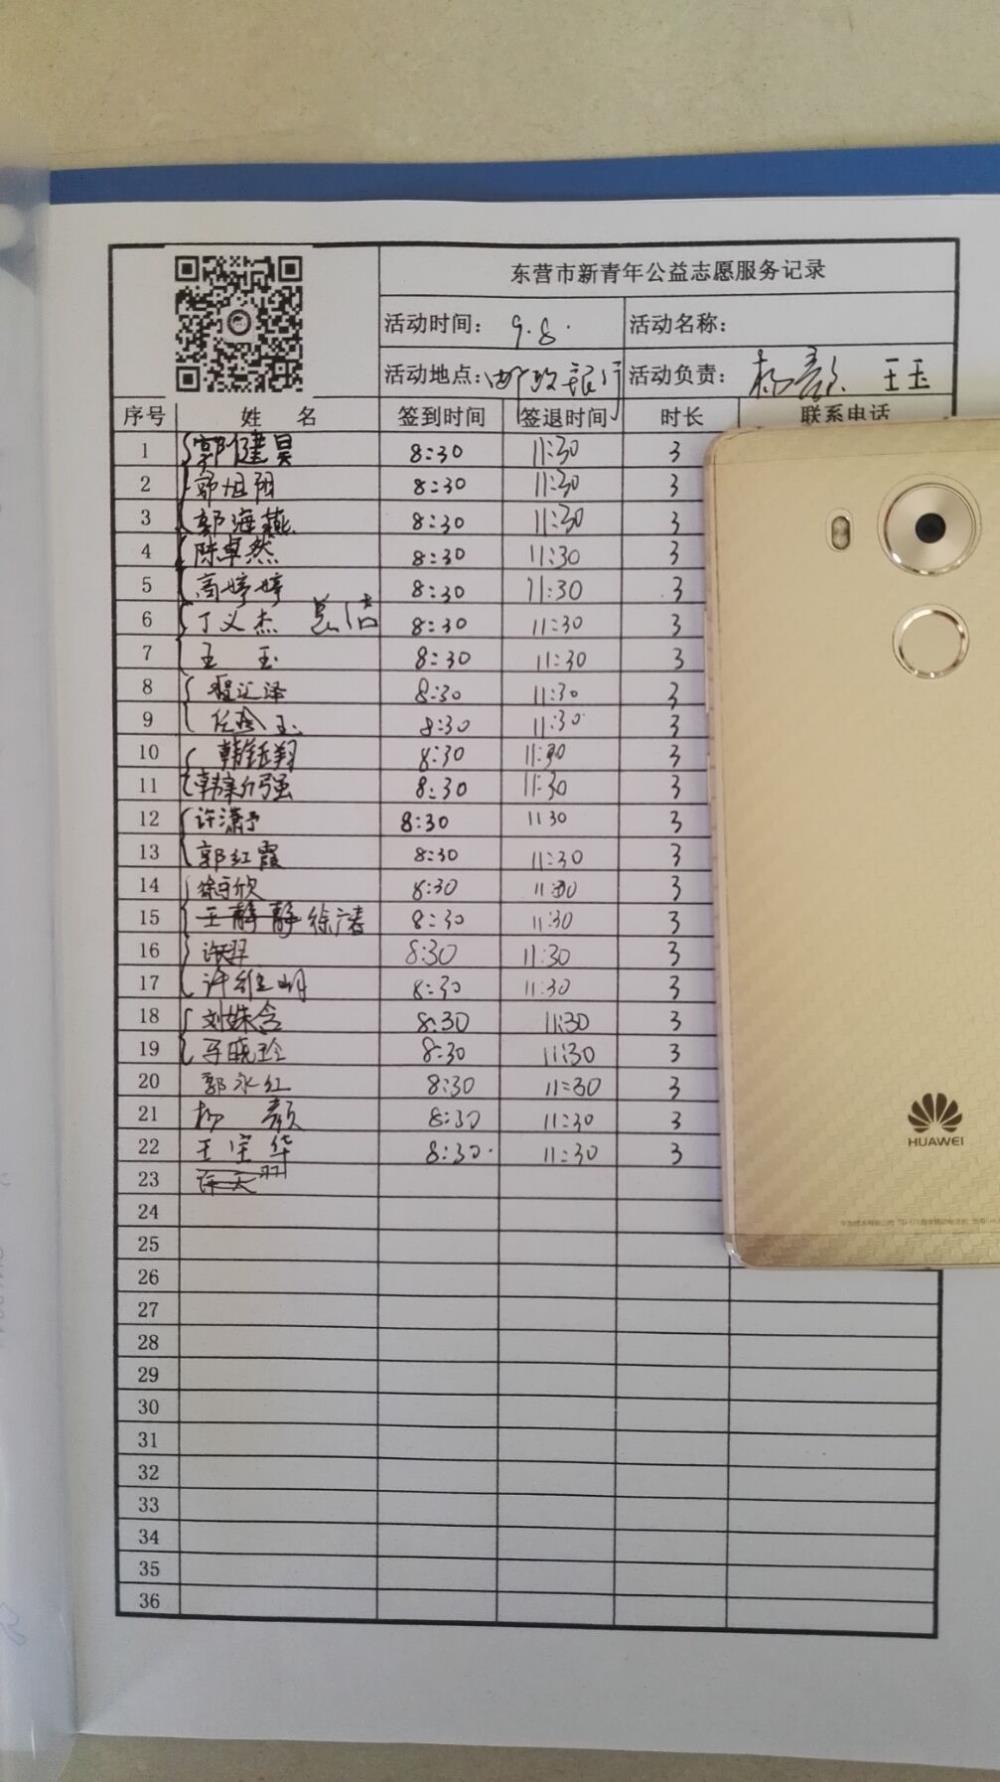 东营市新青年公益志愿服务记录
活动时间： 9.8. 活动名称：
活动地点： 邮政银行 活动负责： 杨颜 王玉
序号 姓名 签到时间 签退时间 时长 联系电话
1 郭健昊 8:30 11:30 3
2 郭旭阳 8:30 11:30 3
3 郭海燕 8:30 11:30 3
4 陈卓然 8:30 11:30 3
5 高婷婷 8:30 11:30 3
6 丁义杰 8:30 11:30 3
7 王玉 8:30 11:30 3
8 汇泽 8:30 11:30 3
9 任玲玉 8:30 11:30 3
10 韩钰翔 8:30 11:30 3
11 韩新强 8:30 11:30 3
12 许潇予 8:30 11 30 3
13 郭红霞 8:30 11:30 3
14 徐子欣 8:30 11:30 3
15 王静静 徐涛 8:30 11:30 3
16 8:30 11:30 3
17 许维明 8:30 11:30 3
18 刘姝含 8:30 11:30 3
19 马晓玲 8:30 11:30 3
20 郭永红 8:30 11:30 3
21 杨颜 8:30 11:30 3
22 王宝华 8:30 11:30 3
23
24
25
26
27
28
29
30
31
32
33
34
35
36
HUAWEI